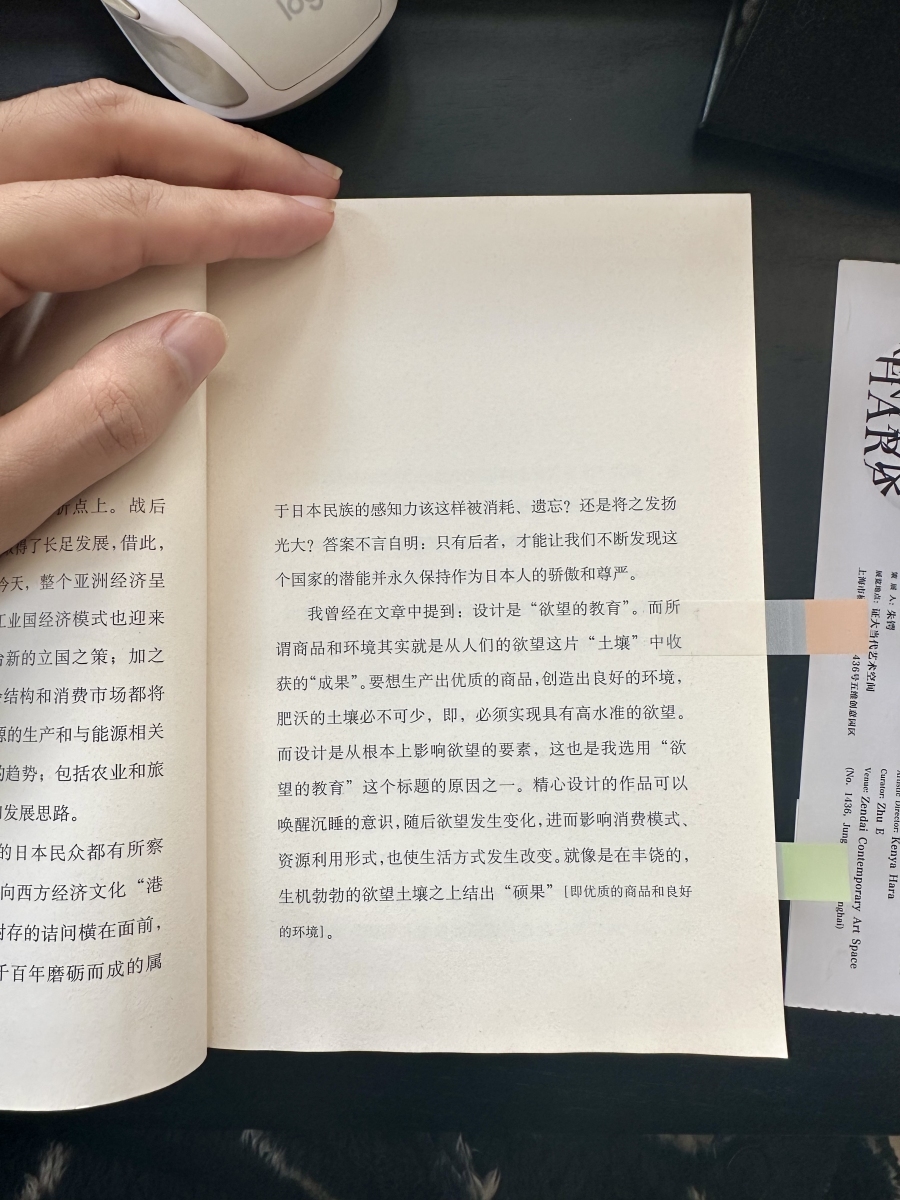 折点上。战后
得了长足发展，借此，
今天，整个亚洲经济呈
工业国经济模式也迎来
新的立国之策；加之
结构和消费市场都将
源的生产和与能源相关
的趋势；包括农业和旅
发展思路。
的日本民众都有所察
向西方经济文化“港
时存的诘问横在面前，
千百年磨砺而成的属
于日本民族的感知力该这样被消耗、遗忘？还是将之发扬
光大？答案不言自明：只有后者，才能让我们不断发现这
个国家的潜能并永久保持作为日本人的骄傲和尊严。
我曾经在文章中提到：设计是“欲望的教育”。而所
谓商品和环境其实就是从人们的欲望这片“土壤”中收
获的“成果”。要想生产出优质的商品，创造出良好的环境，
肥沃的土壤必不可少，即，必须实现具有高水准的欲望。
而设计是从根本上影响欲望的要素，这也是我选用“欲
望的教育”这个标题的原因之一。精心设计的作品可以
唤醒沉睡的意识，随后欲望发生变化，进而影响消费模式、
资源利用形式，也使生活方式发生改变。就像是在丰饶的，
生机勃勃的欲望土壤之上结出“硕果”［即优质的商品和良好
的环境］。
HARA
策 展 人：朱锷
展览地点：证大当代艺术空间
上海市
436号五维创意园区
Director: Kenya Hara
Curator: Zhu E
Venue: Zendai Contemporary Art Space
(No. 1436, Jung
nghai)
log